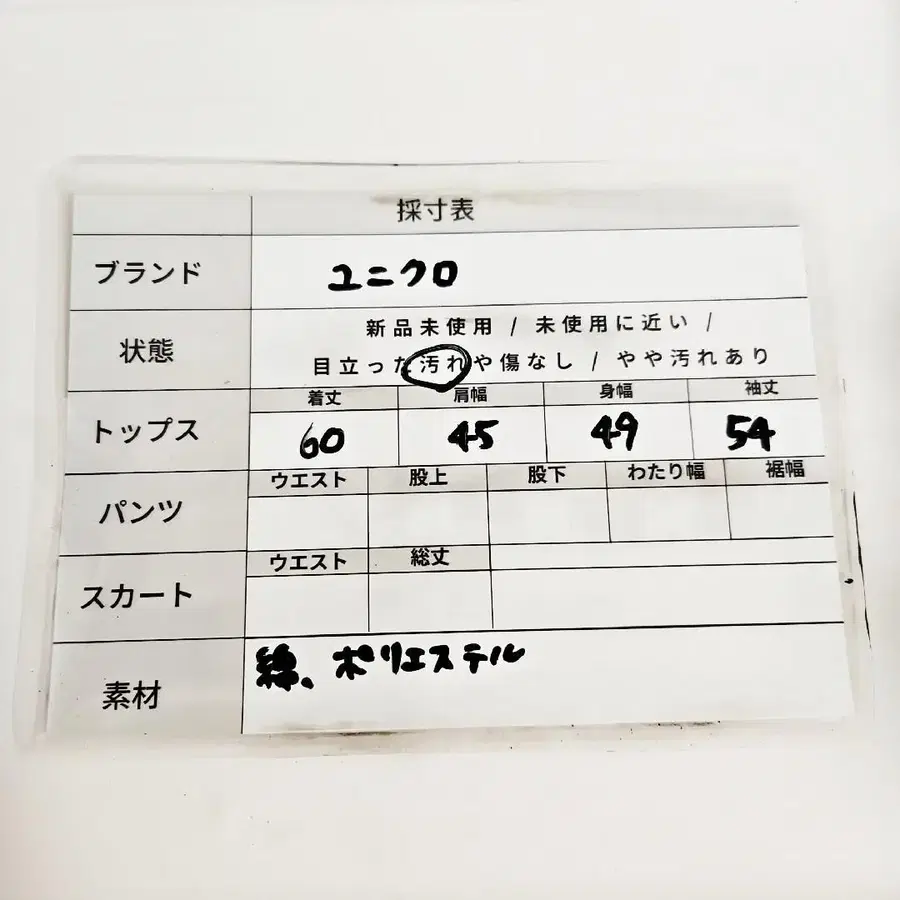 採寸表
ブランド ユニクロ
新品未使用 / 未使用に近い /
状態
目立った汚れや傷なし / やや汚れあり
着丈 肩幅 身幅 袖丈
トップス 60 45 49 54
ウエスト 股上 股下 わたり幅 裾幅
パンツ
ウエスト 総丈
スカート
素材 綿、ポリエステル